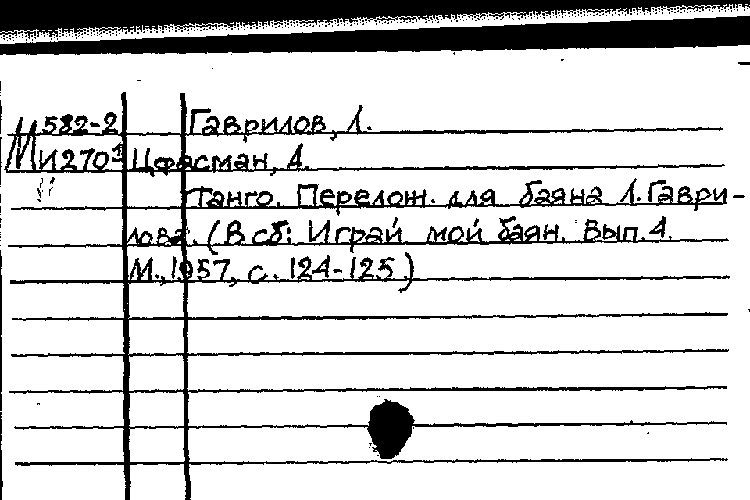 М 582-2 Гаврилов, Л.
И270¹ Цфасман, А.
Танго. Перелож. для баяна Л. Гаври-
лова. (В сб: Играй мой баян. Вып. 4.
М., 1957, с. 124-125)